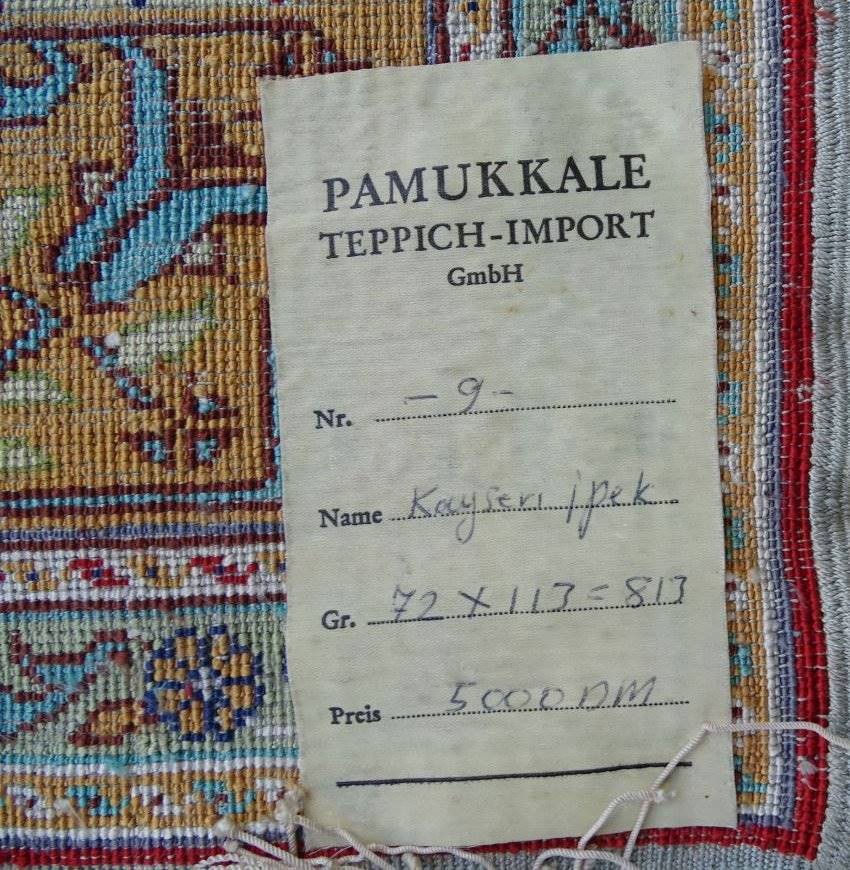 PAMUKKALE
TEPPICH-IMPORT
GmbH
Nr. - 9 -
Name Kayseri ipek
Gr. 72 X 113 = 813
Preis 5000 DM